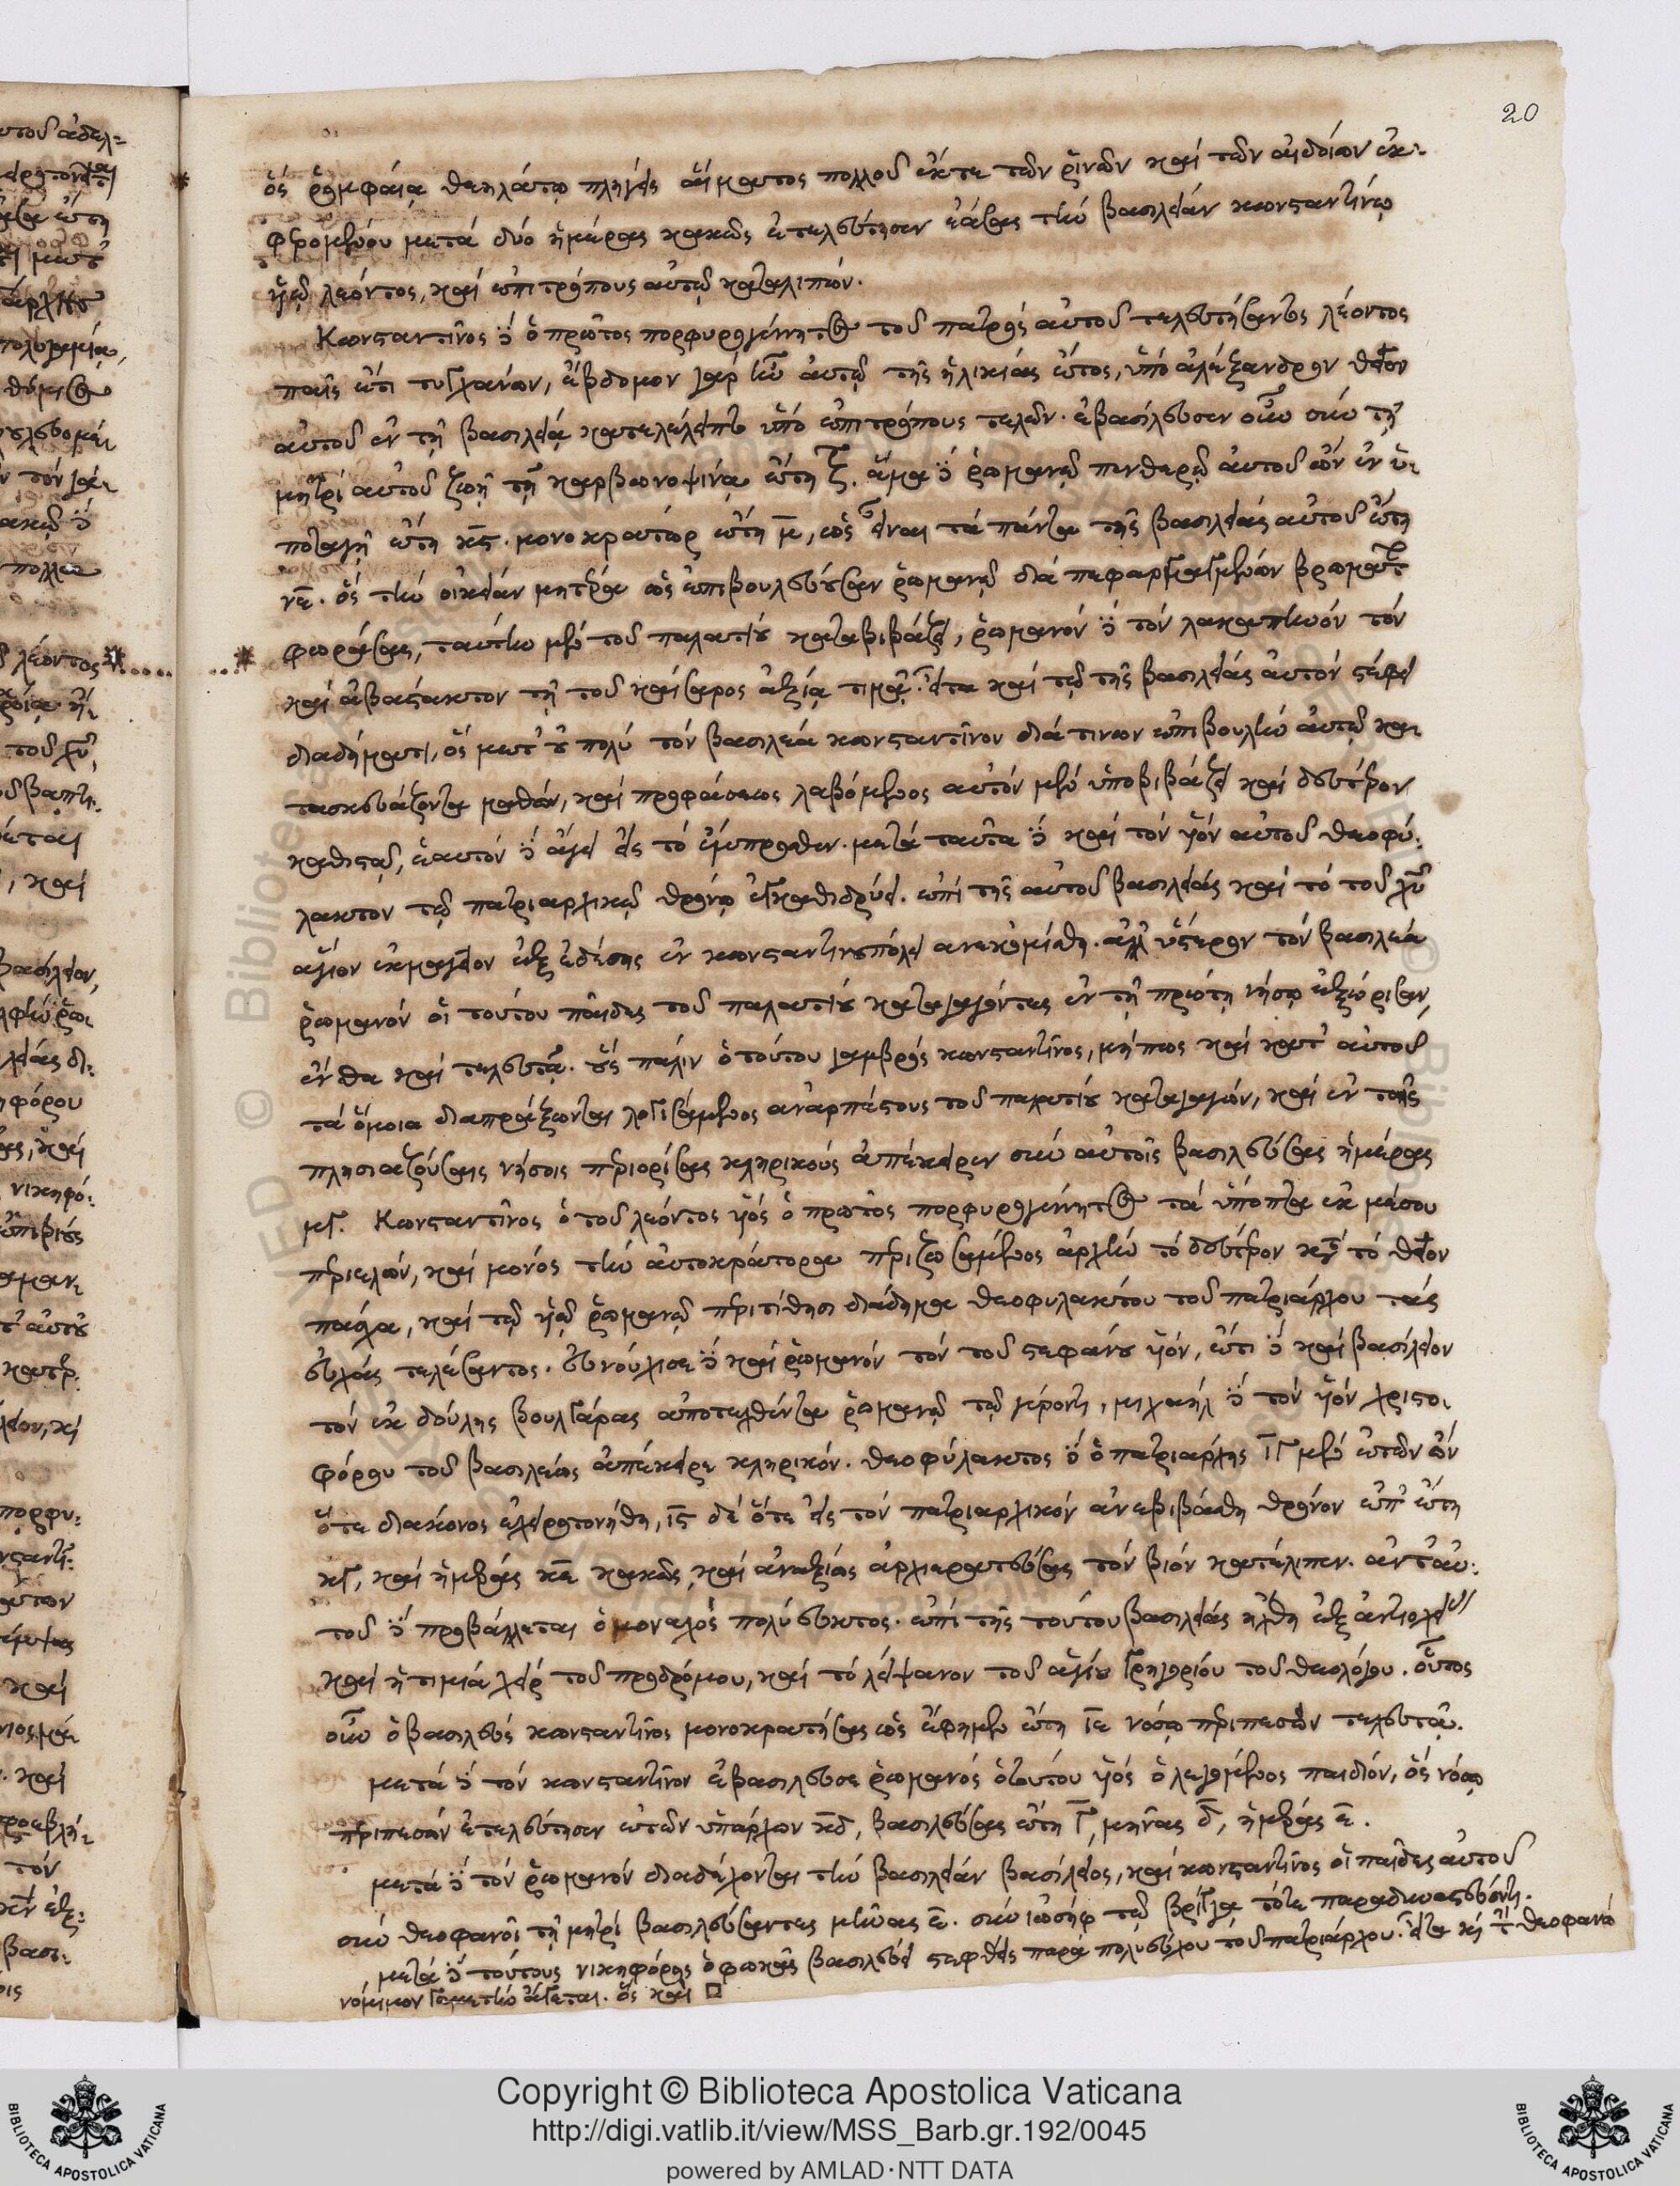 20
ὃς ῥομφαίᾳ θεηλάτῳ πληγεὶς αἵματος πολλοῦ ἔκτε τῶν ῥινῶν καὶ τῶν αἰδοίων ἐκ-
φερομένου μετὰ δύο ἡμέρας κακῶς ἐτελεύτησεν ἐάσας τὴν βασιλείαν κωνσταντίνῳ
υἱῷ λέοντος, καὶ ἐπιτρόπους αὐτῷ καταλιπών.
Κωνσταντῖνος δὲ ὁ πρῶτος πορφυρογέννητος τοῦ πατρὸς αὐτοῦ τελευτήσαντος λέοντος
παῖς ἔτι τυγχάνων, ἕβδομον γὰρ ἦν αὐτῷ τῆς ἡλικίας ἔτος, ὑπὸ ἀλέξανδρον θεῖον
αὐτοῦ ἐν τῇ βασιλείᾳ καταλέλειπτο ὑπὸ ἐπιτρόπους τελῶν. ἐβασίλευσεν οὖν σὺν τῇ
μητρὶ αὐτοῦ ζωῇ τῇ καρβωνοψίνᾳ ἔτη ζ. ἅμα δὲ ῥωμανῷ πενθερῷ αὐτοῦ ὢν ἐν ὑ-
ποταγῇ ἔτη κς. μονοκράτωρ ἔτη ιε, ὡς εἶναι τὰ πάντα τῆς βασιλείας αὐτοῦ ἔτη
νε. ὃς τὴν οἰκείαν μητέρα ὡς ἐπιβουλεύουσαν ῥωμανῷ διὰ πεφαρμαγμένων βρωμάτ
φωράσας, ταύτην μὲν τοῦ παλατίου καταβιβάζει, ῥωμανὸν δὲ τὸν λακαπηνὸν τὸν
καὶ ἀβάστακτον τῇ τοῦ καίσαρος ἀξίᾳ τιμᾷ. εἶτα καὶ τῷ τῆς βασιλείας αὐτὸν στέφει
διαδήματι, ὃς μετ' οὐ πολὺ τὸν βασιλέα κωνσταντῖνον διά τινων ἐπιβουλὴν αὐτῷ κα-
τασκευάζοντα μαθὼν, καὶ προφάσεως λαβόμενος αὐτὸν μὲν ὑποβιβάζει καὶ δεύτερον
καθιστᾷ, ἑαυτὸν δὲ ἄγει εἰς τὸ ἔμπροσθεν. μετὰ ταῦτα δὲ καὶ τὸν υἱὸν αὐτοῦ θεοφύ-
λακτον τῷ πατριαρχικῷ θρόνῳ ἐγκαθιδρύει. ἐπὶ τῆς αὐτοῦ βασιλείας καὶ τὸ τοῦ χυ
ἅγιον ἐκμαγεῖον ἐξ ἐδέσης ἐν κωνσταντινουπόλει ἀνεκομίσθη. ἀλλ' ὕστερον τὸν βασιλέα
ῥωμανὸν οἱ τούτου παῖδες τοῦ παλατίου καταγαγόντες ἐν τῇ πρώτῃ νήσῳ ἐξώρισαν,
ἔνθα καὶ τελευτᾷ. οὓς πάλιν ὁ τούτου γαμβρὸς κωνσταντῖνος, μή πως καὶ κατ' αὐτοῦ
τὰ ὅμοια διαπράξωνται λογισάμενος ἀναρπάστους τοῦ παλατίου καταγαγὼν, καὶ ἐν ταῖς
πλησιαζούσαις νήσοις περιορίσας κληρικοὺς ἀπέκειρεν σὺν αὐτοῖς βασιλεύσας ἡμέρας
μγ. Κωνσταντῖνος ὁ τοῦ λέοντος υἱὸς ὁ πρῶτος πορφυρογέννητος τὰ ὕποπτα ἐκ μέσου
περιελὼν, καὶ μόνος τὴν αὐτοκράτορα περιζωσάμενος ἀρχὴν τὸ δεύτερον κατὰ τὸ θεῖον
πάσχα, καὶ τῷ υἱῷ ῥωμανῷ περιτίθησι διάδημα θεοφυλάκτου τοῦ πατριάρχου τὰς
εὐχὰς τελέσαντος. εὐνούχισε δὲ καὶ ῥωμανὸν τὸν τοῦ στεφάνου υἱὸν, ἔτι δὲ καὶ βασίλειον
τὸν ἐκ δούλης βουλγάρας ἀποτεχθέντα ῥωμανῷ τῷ γέροντι, μιχαὴλ δὲ τὸν υἱὸν χριστο-
φόρου τοῦ βασιλέως ἀπέκειρε κληρικόν. θεοφύλακτος δὲ ὁ πατριάρχης ιγ μὲν ἐτῶν ὢν
ὅτε διάκονος ἐχειροτονήθη, ις δὲ ὅτε εἰς τὸν πατριαρχικὸν ἀνεβιβάσθη θρόνον ἐπ' ἔτη
κγ, καὶ ἡμέρας κε κακῶς καὶ ἀναξίως ἀρχιερατεύσας τὸν βίον κατέλιπεν. ἀντ' αὐ-
τοῦ δὲ προβάλλεται ὁ μοναχὸς πολύευκτος. ἐπὶ τῆς τούτου βασιλείας ἤχθη ἐξ ἀντιοχεί
καὶ ἡ τιμία χεὶρ τοῦ προδρόμου, καὶ τὸ λείψανον τοῦ ἁγίου γρηγορίου τοῦ θεολόγου. οὗτος
οὖν ὁ βασιλεὺς κωνσταντῖνος μονοκρατήσας ὡς ἔφημεν ἔτη ιε νόσῳ περιπεσὼν τελευτᾷ.
μετὰ δὲ τὸν κωνσταντῖνον ἐβασίλευσε ῥωμανὸς ὁ τούτου υἱὸς ὁ λεγόμενος παιδίον, ὃς νόσῳ
περιπεσὼν ἐτελεύτησεν ἐτῶν ὑπάρχων κδ, βασιλεύσας ἔτη γ, μῆνας δ, ἡμέρας ε.
μετὰ δὲ τὸν ῥωμανὸν διαδέχονται τὴν βασιλείαν βασίλειος, καὶ κωνσταντῖνος οἱ παῖδες αὐτοῦ
σὺν θεοφανοῖ τῇ μητρὶ βασιλεύσαντες μῆνας ε. σὺν ἰωσὴφ τῷ βρίγγᾳ τότε παραδυναστεύοντι.
μετὰ δὲ τούτους νικηφόρος ὁ φωκᾶς βασιλεύει στεφθεὶς παρὰ πολυεύκτου τοῦ πατριάρχου. εἶτα καὶ τὴν θεοφανὼ
νόμιμον γαμετὴν ἄγεται. ὃς καὶ
Copyright © Biblioteca Apostolica Vaticana
http://digi.vatlib.it/view/MSS_Barb.gr.192/0045
powered by AMLAD·NTT DATA
BIBLIOTECA APOSTOLICA VATICANA
BIBLIOTECA APOSTOLICA VATICANA